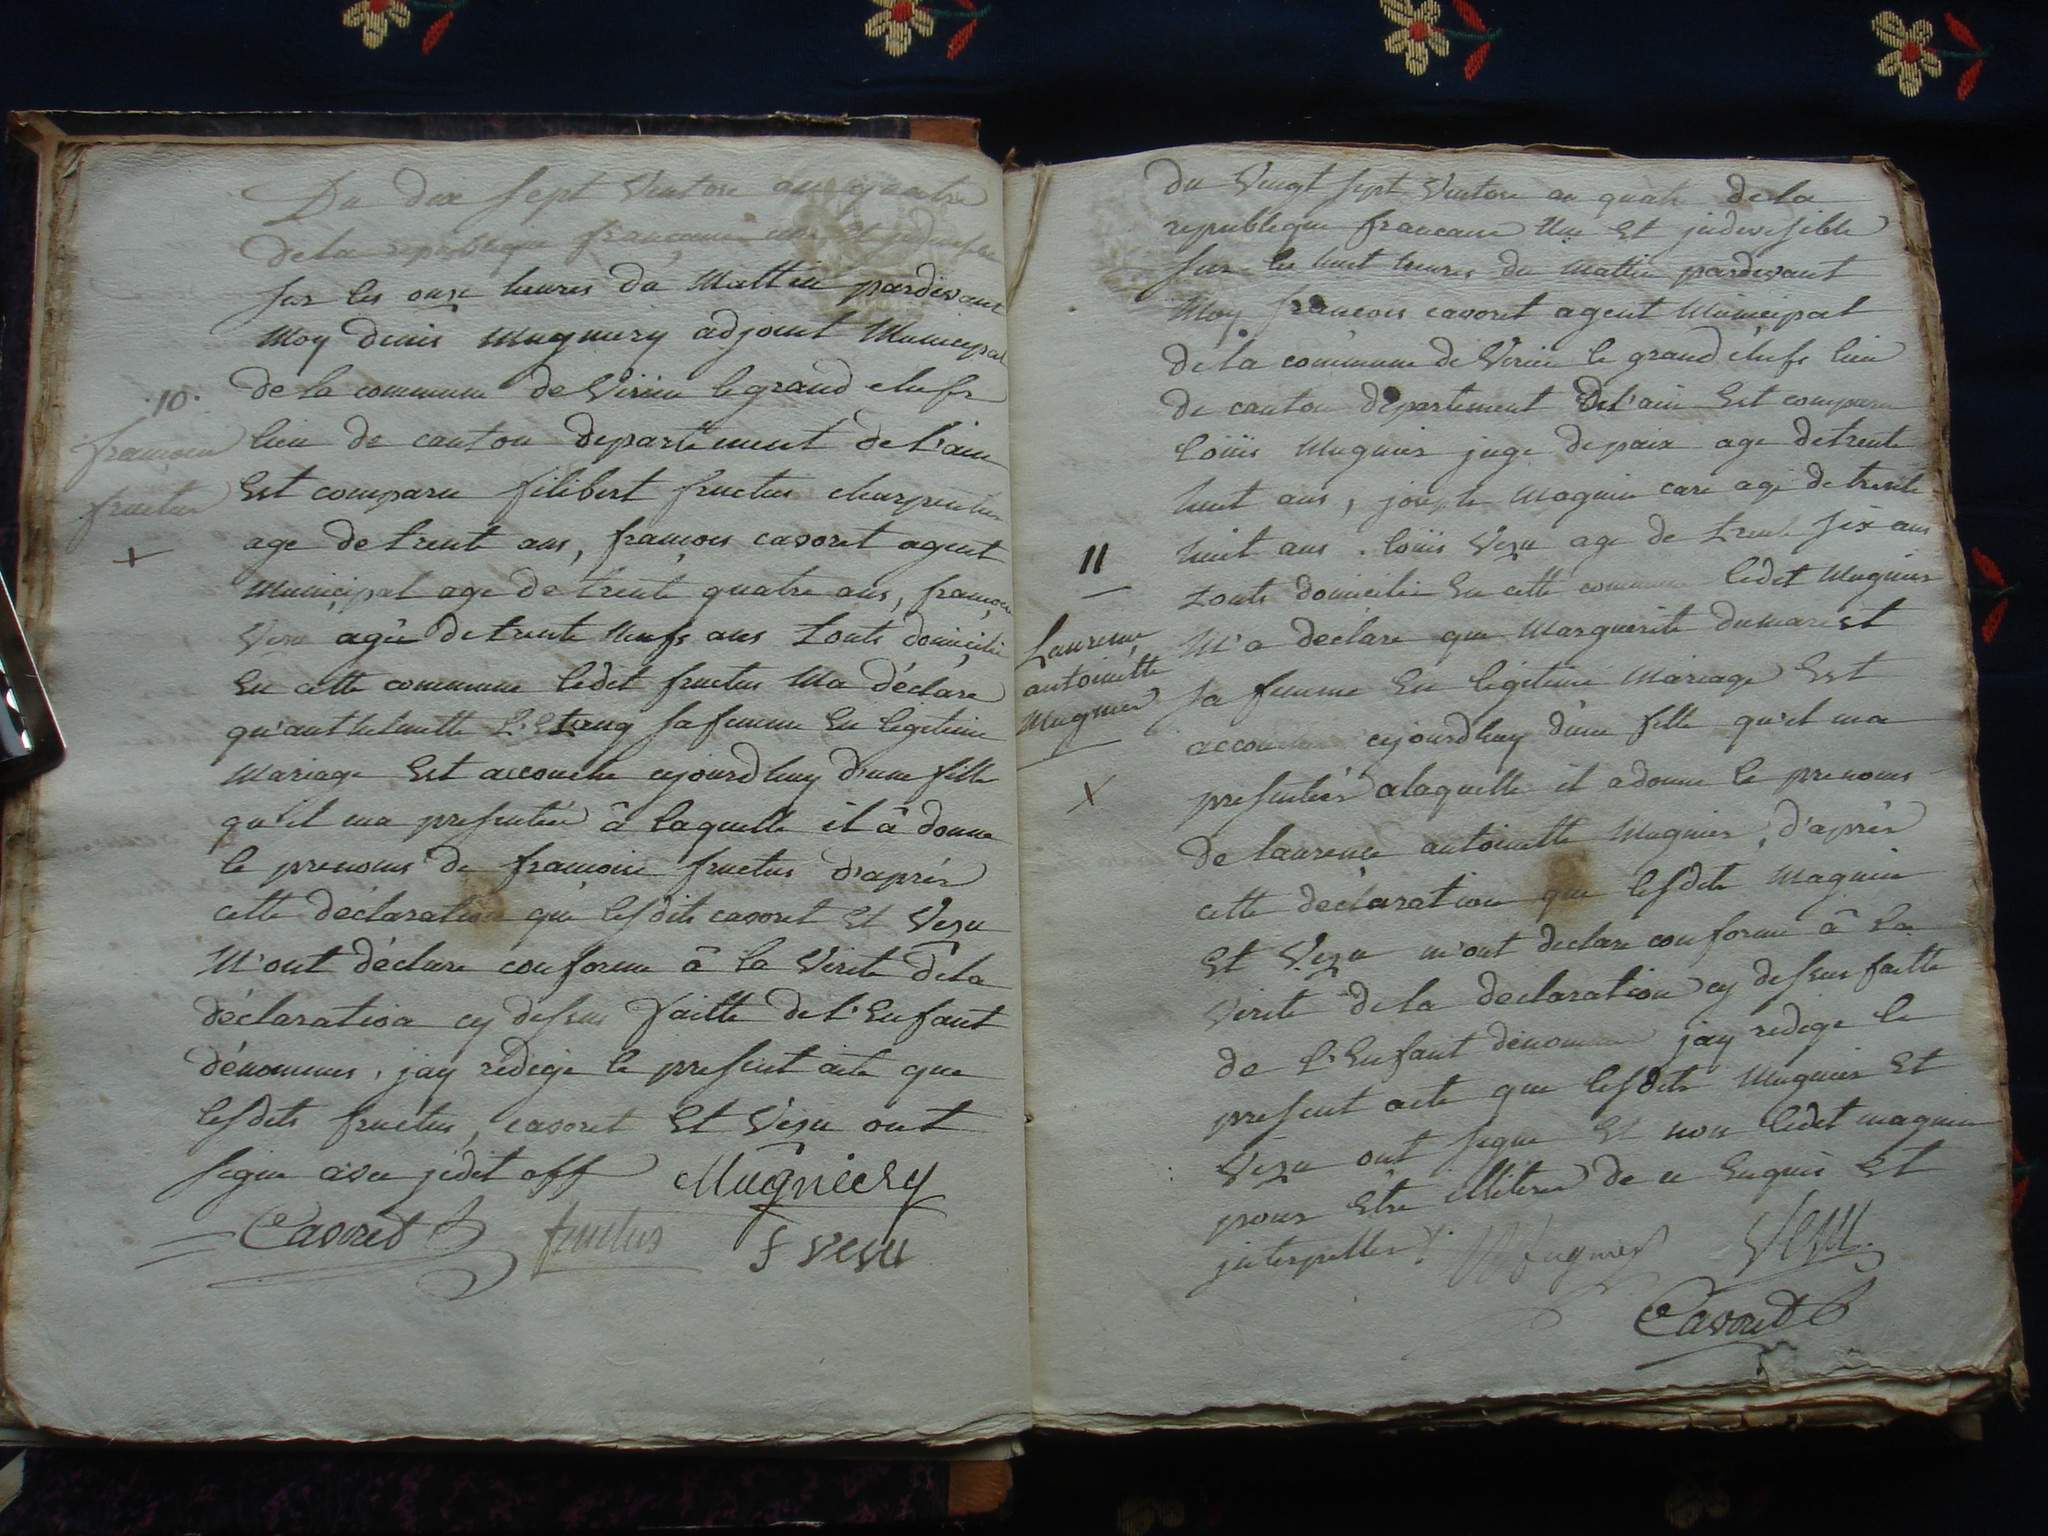 Du dix sept Ventose an quatre
de la republique francaise une et jndivisible
sur les onze heures du Mattin pardevant
Moy denis Mugniery adjoint Municipal
de la commune de Virieu le grand chefs
lieu de canton departement de l'ain
Est comparu filibert fructus charpentier
age de trente ans, françois cavoret agent
Municipal age de trente quatre ans, françois
Vezu agée de trente Neufs ans touts domicilié
En cette commune ledit fructus Ma déclare
qu'anthelmette L'Etang sa femme En legitime
Mariage Est accouche cejourdhuy d'une fille
qu'il ma presentée â laquelle il â donne
le prenoms de francoise fructus d'après
cette déclaration que lesdits cavoret Et Vezu
M'ont déclare conforme â la Verite de la
déclaration cy dessus faitte de l'Enfant
dénommes, jay rédige le present acte que
lesdits fructus, cavoret Et Vezu ont
signe avec jedit off Mugniery
Cavoret fructus f vesu
·10·
francoise
fructus
X
du Vingt sept Ventose an quatre de la
republique francaise Une Et jndivisible
sur les huit heures du Mattin pardevant
Moy françois cavoret agent Municipal
de la commune de Virieu le grand chefs lieu
de canton département de l'ain Est comparu
loüis Mugnier juge de paix age de trente
huit ans, joseph Magnin age de trente
huit ans. loüis Vezu age de trente six ans
touts domicilié En cette commune ledit Mugnier
M'a déclare que Marguerite dumarest
sa femme En legitime Mariage Est
accouchee cejourdhuy d'une fille qu'il ma
presentées alaquelle il adonne le prenoms
de laurence antoinette Mugnier, d'après
cette déclaration que lesdits Magnin
Et Vezu m'ont declare conforme â la
Verite de la declaration cy dessus faitte
de l'Enfant dénommes jay redige le
present acte que lesdits Mugnier Et
Vezu ont signe Et non ledit magnin
pour Etre illitere de ce Enquis Et
jnterpelles. Mugnier Vesu
Cavoret
11
Laurence
antoinette
Mugnier
X